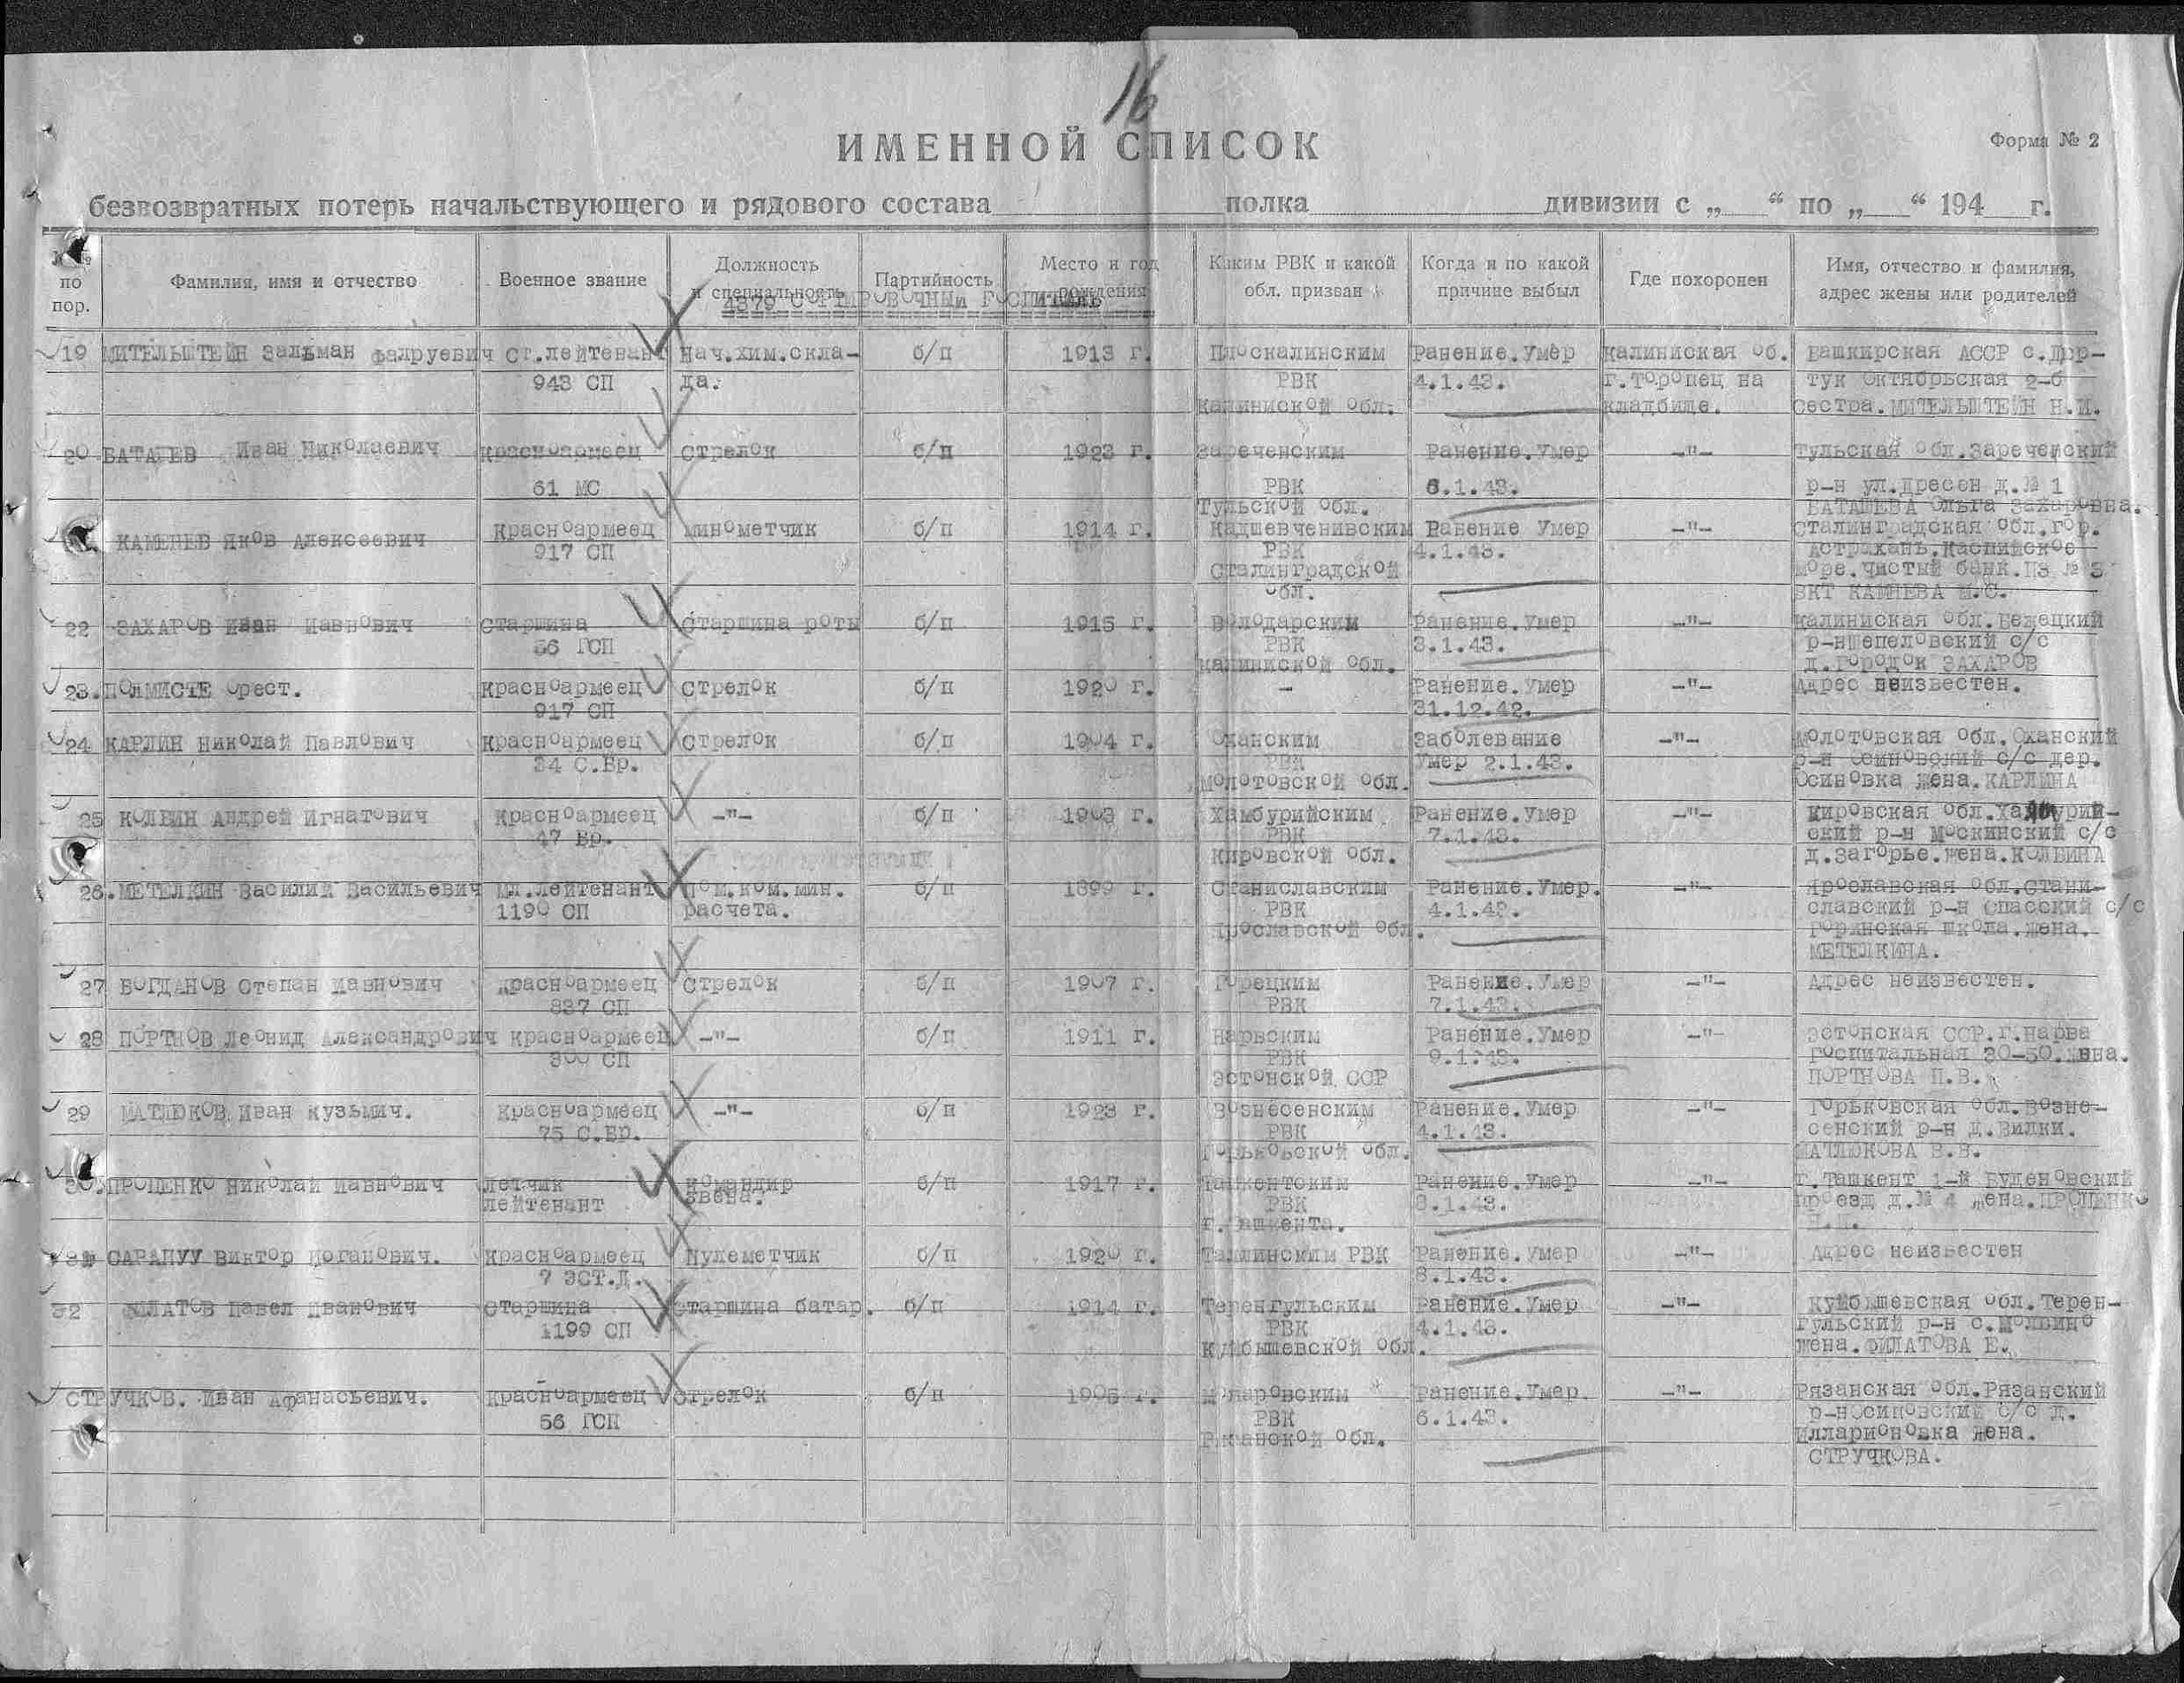 16
ИМЕННОЙ СПИСОК
Форма № 2
безвозвратных потерь начальствующего и рядового состава полка дивизии с „ “ по „ “ 194 г.
№№ по пор. Фамилия, имя и отчество Военное звание Должность и специальность Партийность Место и год рождения Каким РВК и какой обл. призван Когда и по какой причине выбыл Где похоронен Имя, отчество и фамилия, адрес жены или родителей
4379 СОРТИРОВОЧНЫЙ ГОСПИТАЛЬ
19 МИТЕЛЬШТЕЙН Зальман Фалруевич Ст.лейтенант Нач.хим.скла- б/п 1913 г. Плоскалинским Ранение.Умер Калиниская об. Башкирская АССР с.Дюр-
943 СП да. РВК 4.1.43. г.Торопец на тук Октябрьская 2-б
Калиниской обл. кладбище. сестра.МИТЕЛЬШТЕЙН Н.И.
20 БАТАШЕВ Иван Николаевич Красноармеец Стрелок б/п 1923 г. Зареченским Ранение.Умер -"- Тульская обл.Зареченский
61 МС РВК 6.1.43. р-н ул.Дресен д.№ 1
Тульской обл. БАТАШЕВА Ольга Захаровна.
КАМЕНЕВ Яков Алексеевич Красноармеец Минометчик б/п 1914 г. Кадшевченивским Ранение Умер -"- Сталинградская обл.гор.
917 СП РВК 4.1.43. Астрахань.Каспийское
Сталинградской море.Чистый банк.Пз № 3
обл. ВКТ КАМНЕВА М.С.
22 ЗАХАРОВ Иван Иавнович Старшина Старшина роты б/п 1915 г. Володарским Ранение.Умер -"- Калиниская обл.Бежецкий
56 ГСП РВК 3.1.43. р-нШепеловский с/с
Калиниской обл. д.Городок ЗАХАРОВ
23. ПОЛМИСТЕ Орест. Красноармеец Стрелок б/п 1920 г. - Ранение.Умер -"- Адрес неизвестен.
917 СП 31.12.42.
24 КАРЛИН Николай Павлович Красноармеец Стрелок б/п 1904 г. Оханским Заболевание -"- Молотовская обл.Оханский
34 С.Бр. РВК Умер 2.1.43. р-н Осиновский с/с дер.
Молотовской обл. Осиновка жена.КАРЛИНА
25 КОЛБИН Андрей Игнатович Красноармеец -"- б/п 1903 г. Хамбурийским Ранение.Умер -"- Кировская обл.Хамбурий-
47 Бр. РВК 7.1.43. ский р-н Москинский с/с
Кировской обл. д.Загорье.жена.КОЛБИНА
26. МЕТЕЛКИН Василий Васильевич Мл.лейтенант Пом.ком.мин. б/п 1899 г. Станиславским Ранение.Умер. -"- Ярославская обл.Стани-
1190 СП расчета. РВК 4.1.43. славский р-н Спасский с/с
Ярославской обл. Горинская школа.жена.
МЕТЕЛКИНА.
27 БОГДАНОВ Степан Иавнович Красноармеец Стрелок б/п 1907 г. Горецким Ранение.Умер -"- Адрес неизвестен.
837 СП РВК 7.1.43.
28 ПОРТНОВ Леонид Александрович Красноармеец -"- б/п 1911 г. Нарвским Ранение.Умер -"- Эстонская ССР.г.Нарва
300 СП РВК 9.1.43. Госпитальная 30-50.жена.
Эстонской ССР ПОРТНОВА П.В.
29 МАТЛЮКОВ Иван Кузьмич. Красноармеец -"- б/п 1923 г. Вознесенским Ранение.Умер -"- Горьковская обл.Возне-
75 С.Бр. РВК 4.1.43. сенский р-н д.Вилки.
Горьковской обл. МАТЛЮКОВА В.В.
30. ПРОЦЕНКО Николай Иавнович летчик Командир б/п 1917 г. Ташкентским Ранение.Умер -"- г.Ташкент 1-й Буденовский
лейтенант звена. РВК 3.1.43. проезд д.№ 4 жена.ПРОЦЕНКО
г.Ташкента.
31 САРАПУУ Виктор Йоганович. Красноармеец Пулеметчик б/п 1920 г. Таллинским РВК Ранение.Умер -"- Адрес неизвестен
7 ЭСТ.Д. 8.1.43.
32 ФИЛАТОВ Павел Иванович Старшина Старшина батар. б/п 1914 г. Теренгульским Ранение.Умер -"- Куйбышевская обл.Терен-
1199 СП РВК 4.1.43. гульский р-н с.Молвино
Куйбышевской обл. жена.ФИЛАТОВА Е.
СТРУЧКОВ. Иван Афанасьевич. Красноармеец Стрелок б/п 1905 г. Ранение.Умер. -"- Рязанская обл.Рязанский
56 ГСП РВК 6.1.43. р-нОсиновский с/с д.
Рязанской обл. Илларионовка жена.
СТРУЧКОВА.